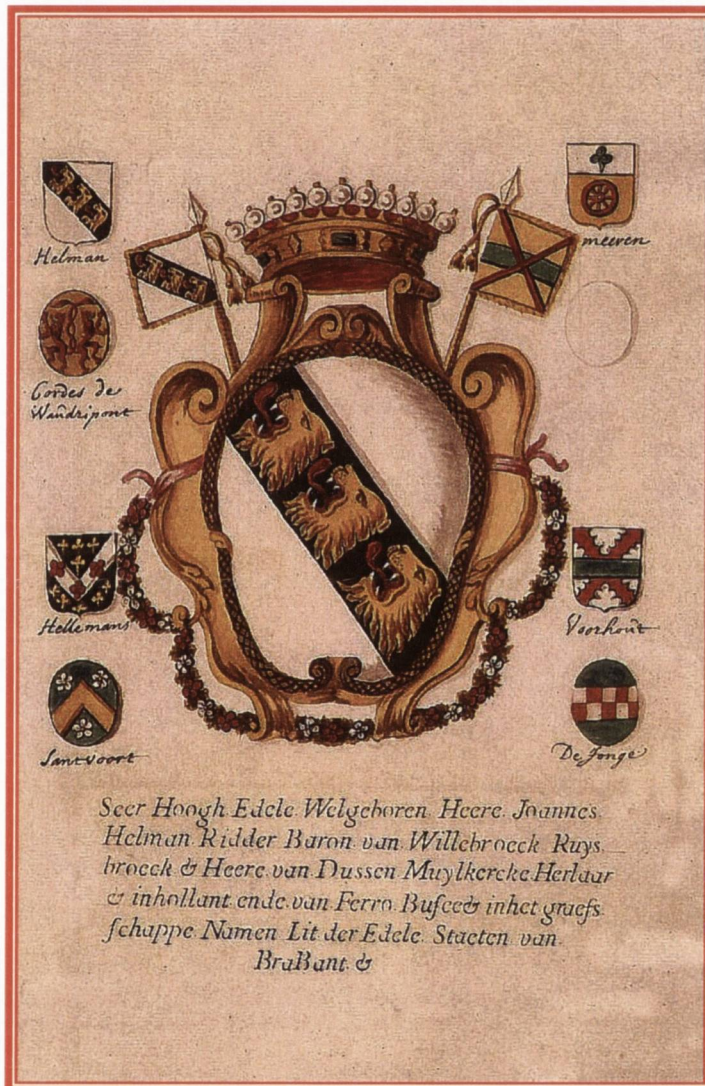 Helman
meeren
Cordes de
Waudripont
Hellemans
Voorhout
Santvoort
De Jonge
Seer Hoogh Edele Welgeboren Heere Joannes
Helman Ridder Baron van Willebroeck Ruys
broeck & Heere van Dussen Muylkercke Herlaar
& inhollant ende van Ferro Busee& inhet graefs
schappe Namen Lit der Edele Staeten van
BraBant &